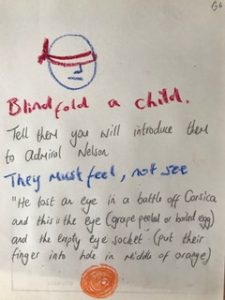 G6
Blindfold a child.
Tell them you will introduce them
to Admiral Nelson
They must feel, not see
"He lost an eye in a battle off Corsica
and this is the eye (grape peeled or boiled egg)
and the empty eye socket" (put their
finger into hole in middle of orange)